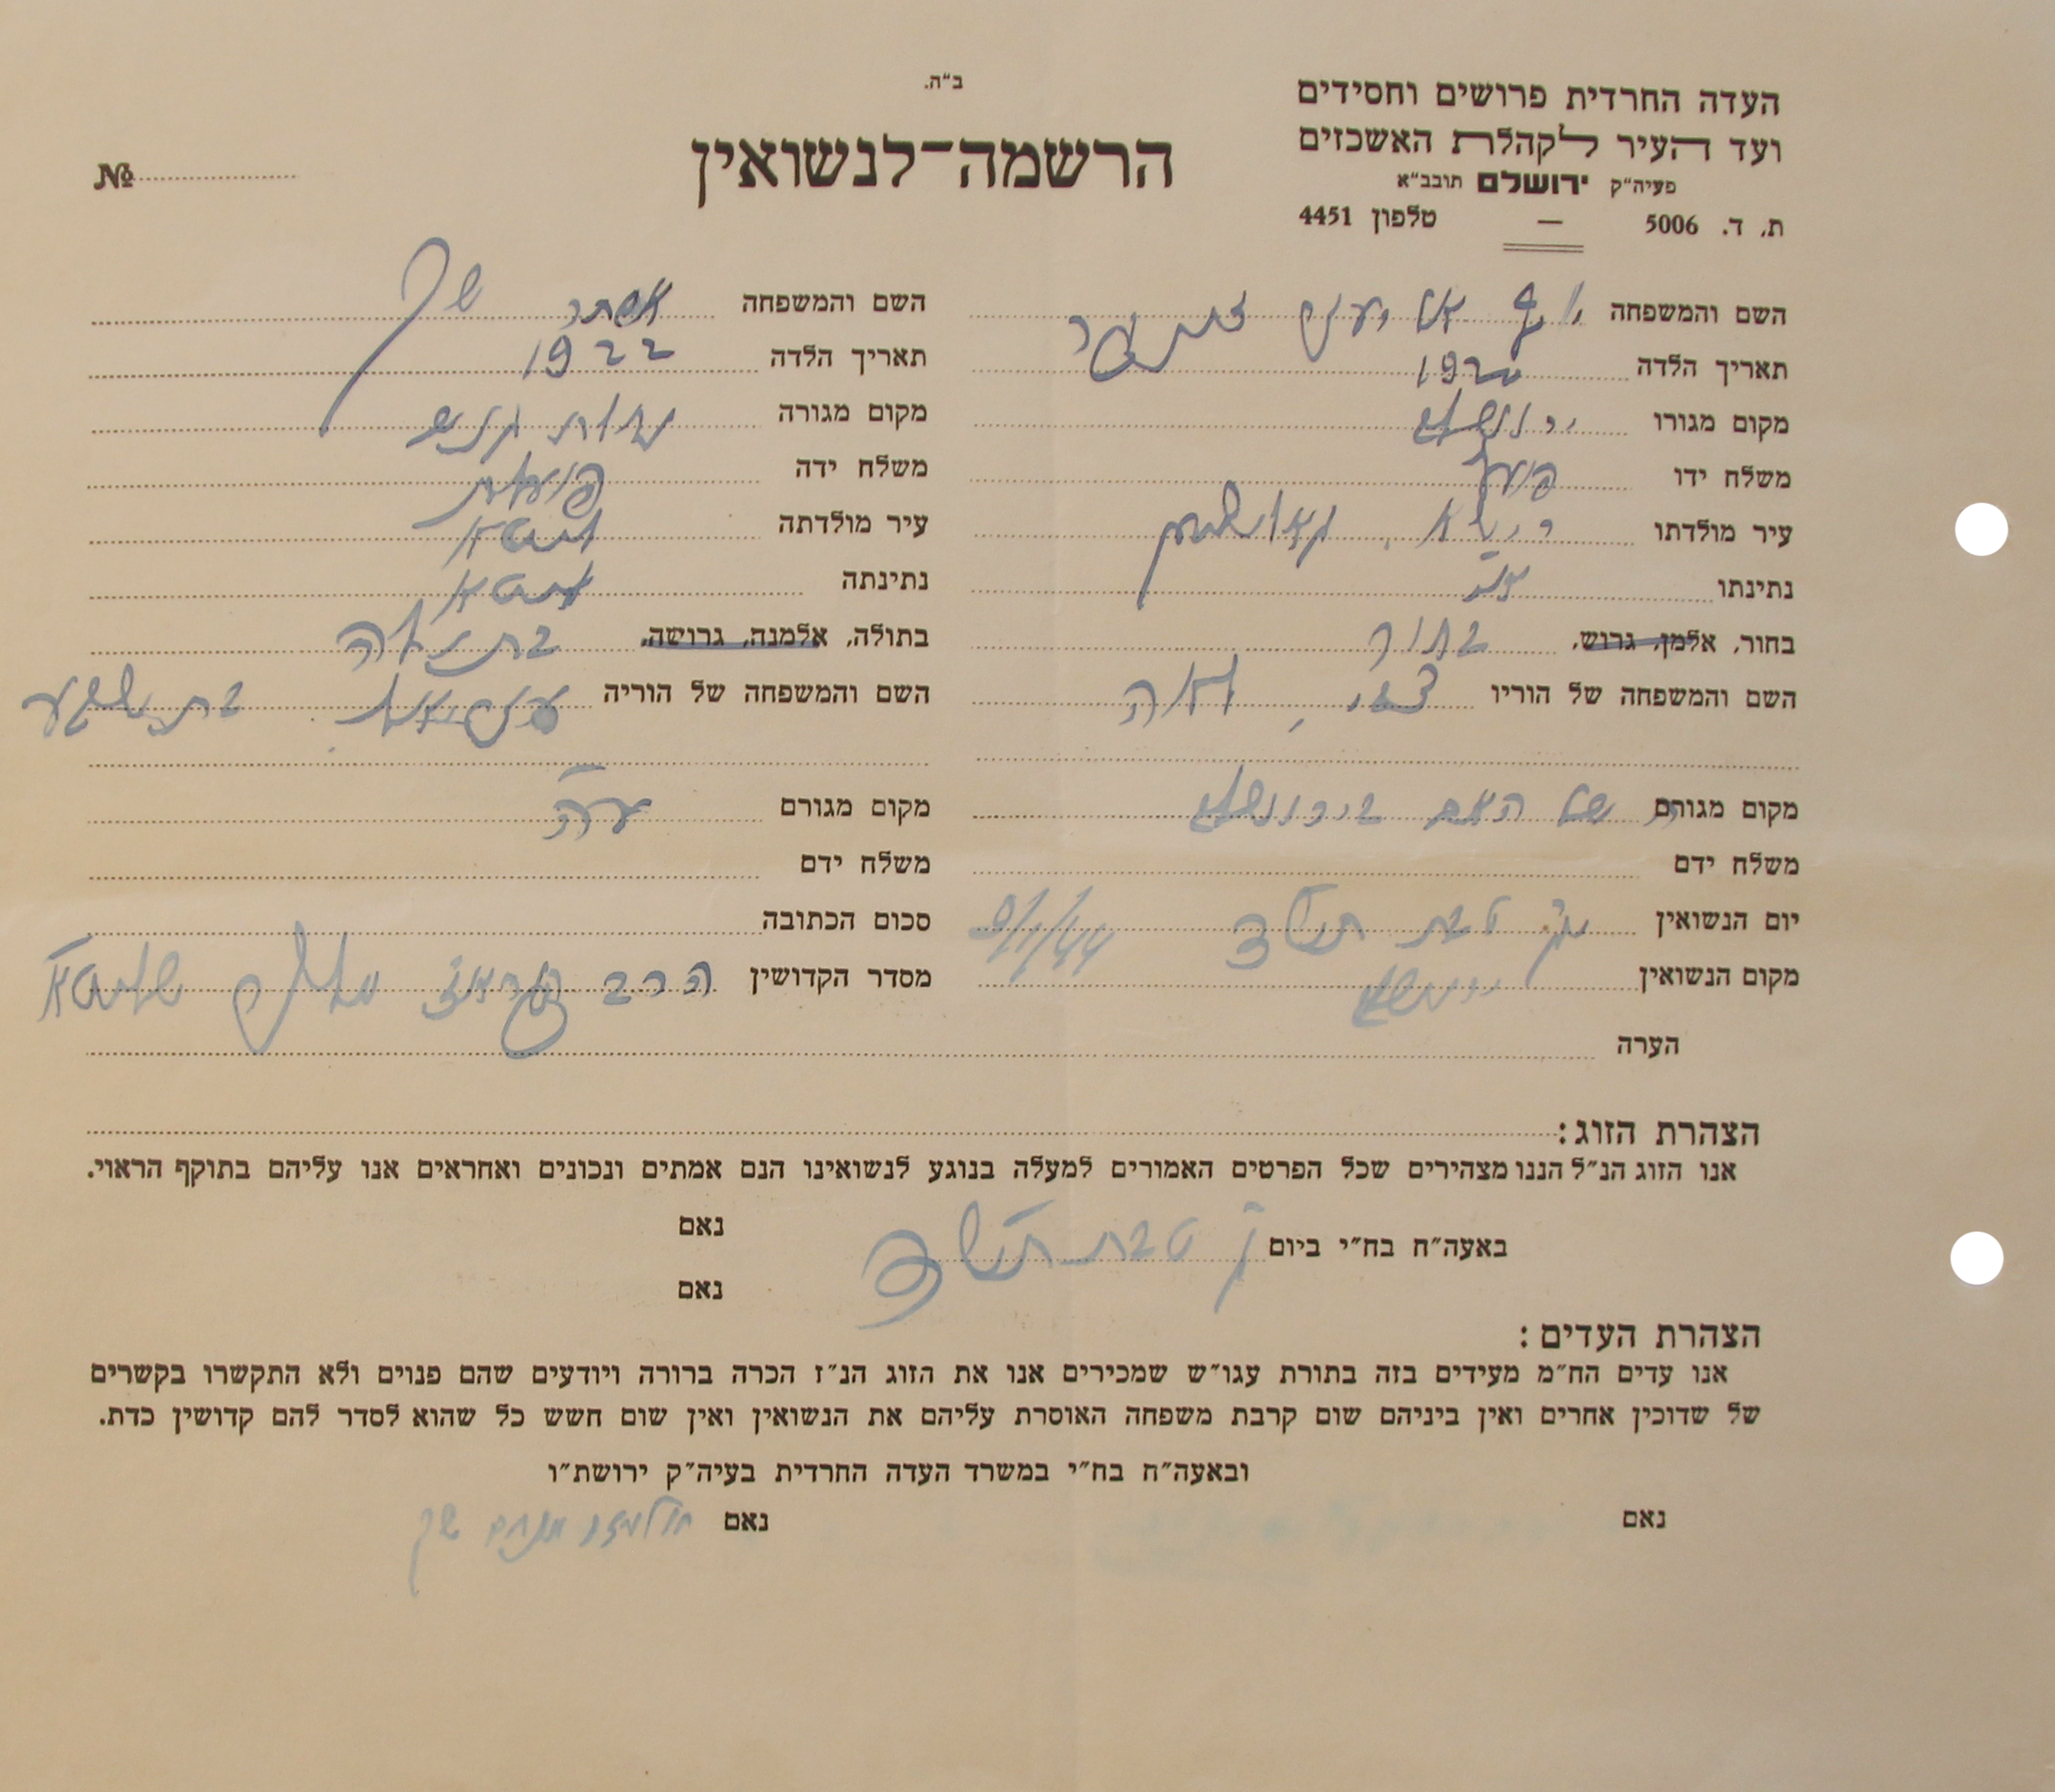 ב"ה.
העדה החרדית פרושים וחסידים
ועד העיר לקהלת האשכזים
פעיה"ק ירושלם תובב"א
ת. ד. 5006 — טלפון 4451
הרשמה־לנשואין
№
השם והמשפחה
תאריך הלדה 1920
מקום מגורו ירושלם
משלח ידו פועל
עיר מולדתו
נתינתו
בחור, אלמן, גרוש, בחור
השם והמשפחה של הוריו צבי, חיה
מקום מגורם של האם בירושלם
משלח ידם
יום הנשואין טבת תש"ד 9/1/44
מקום הנשואין ירושלם
השם והמשפחה אסתר שך
תאריך הלדה 1922
מקום מגורה
משלח ידה פועלת
עיר מולדתה ליטא
נתינתה ליטא
בתולה, אלמנה, גרושה, בתולה
השם והמשפחה של הוריה עזריאל בת שבע
מקום מגורם
משלח ידם
סכום הכתובה
מסדר הקדושין הרב
הערה
הצהרת הזוג:
אנו הזוג הנ"ל הננו מצהירים שכל הפרטים האמורים למעלה בנוגע לנשואינו הנם אמתים ונכונים ואחראים אנו עליהם בתוקף הראוי.
באעה"ח בח"י ביום טבת נאם
נאם
הצהרת העדים:
אנו עדים הח"מ מעידים בזה בתורת עגו"ש שמכירים אנו את הזוג הנ"ז הכרה ברורה ויודעים שהם פנוים ולא התקשרו בקשרים
של שדוכין אחרים ואין ביניהם שום קרבת משפחה האוסרת עליהם את הנשואין ואין שום חשש כל שהוא לסדר להם קדושין כדת.
ובאעה"ח בח"י במשרד העדה החרדית בעיה"ק ירושת"ו
נאם נאם מנחם שך